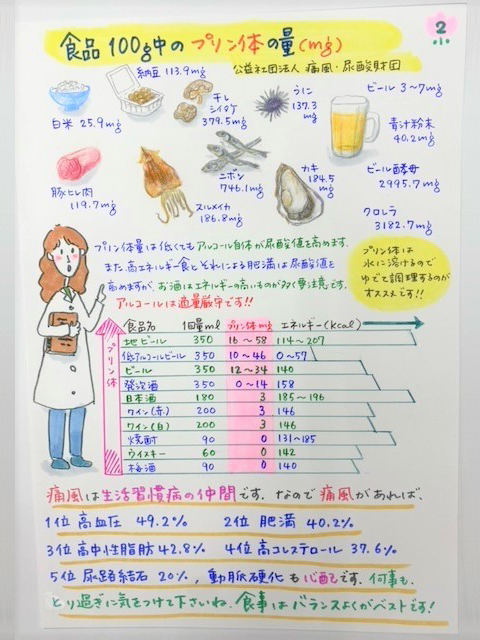 食品100g中のプリン体の量(mg)
2
小
公益社団法人 痛風・尿酸財団
納豆 113.9mg
干し
シイタケ
379.5mg
うに
137.3
mg
ビール 3～7mg
白米 25.9mg
青汁粉末
40.2mg
豚ヒレ肉
119.7mg
スルメイカ
186.8mg
ニボシ
746.1mg
カキ
184.5
mg
ビール酵母
2995.7mg
クロレラ
3182.7mg
プリン体量は低くてもアルコール自体が尿酸値を高めます.
また、高エネルギー食とそれによる肥満は尿酸値を
高めますが、お酒はエネルギーの高いものが多く要注意です.
アルコールは適量厳守です!!
プリン体は
水に溶けるので
ゆでて調理するのが
オススメです!!
プリン体
食品名 1回量ml プリン体mg エネルギー(kcal)
地ビール 350 16～58 114～207
低アルコールビール 350 10～46 0～57
ビール 350 12～34 140
発泡酒 350 0～14 158
日本酒 180 3 185～196
ワイン(赤) 200 3 146
ワイン(白) 200 3 146
焼酎 90 0 131～185
ウイスキー 60 0 142
梅酒 90 0 140
痛風は生活習慣病の仲間です. なので痛風があれば、
1位 高血圧 49.2% 2位 肥満 40.2%
3位 高中性脂肪 42.8% 4位 高コレステロール 37.6%
5位 尿路結石 20%, 動脈硬化も心配です. 何事も、
とり過ぎに気をつけて下さいね. 食事はバランスよくがベストです!